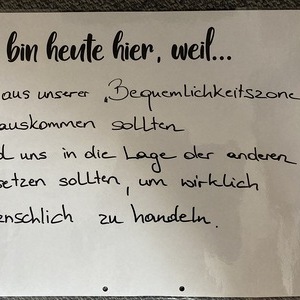 bin heute hier, weil...
aus unserer „Bequemlichkeitszone
auskommen sollten
uns in die Lage der anderen
setzen sollten, um wirklich
enschlich zu handeln.